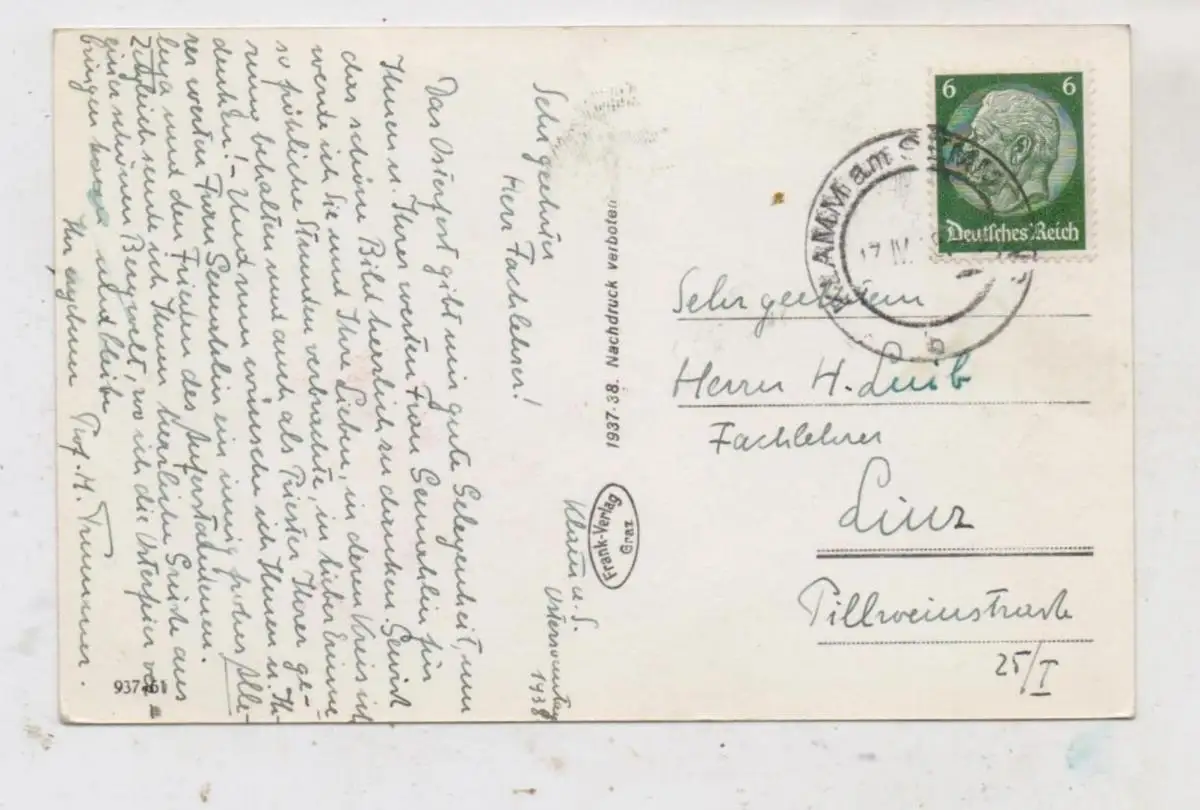 Klamm a. S.
Ostersonntag
1938
Sehr geehrter
Herr Fachlehrer!
Das Osterfest gibt mir gute Gelegenheit, um
Ihnen u. Ihrer werten Frau Gemahlin für
das schöne Bild herzlich zu danken. Gewiß
werde ich Sie und Ihre Lieben, in deren Kreis ich
so fröhliche Stunden verbrachte, in lieber Erinne
rung behalten und auch als Priester Ihrer ge-
denken! - Und nun wünsche ich Ihnen u. Ih-
rer werten Frau Gemahlin ein innig frohes Alle-
luja und den Frieden des Auferstandenen.
Zugleich sende ich Ihnen herzliche Grüße aus
einer schönen Bergwelt, wo ich die Osterferien ver-
bringen kann und bleibe
Ihr ergebener Prof. H. Trummer.
937 461
1937-38. Nachdruck verboten
Frank-Verlag
Graz
6 6
Deutsches Reich
KLAMM am
17 IV
b
Sehr geehrtem
Herrn H. Leib
Fachlehrer
Linz
Tillweinstraße
25/I